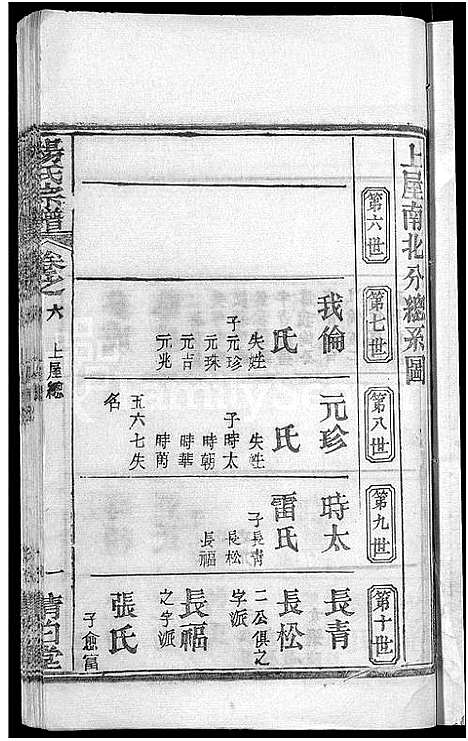 上屋南北分總系圖
第六世
第七世
我倫
氏
失姓
子元珍
元珠
元吉
元兆
第八世
元珍
氏
失姓
子時太
時朝
時華
時蘭
五六七失
名
第九世
時太
雷氏
子長青
長松
長福
第十世
長青
長松
二公俱之
字派
長福
之字派
張氏
子愈富
楊氏宗譜
卷之六
上屋總
一
清白堂